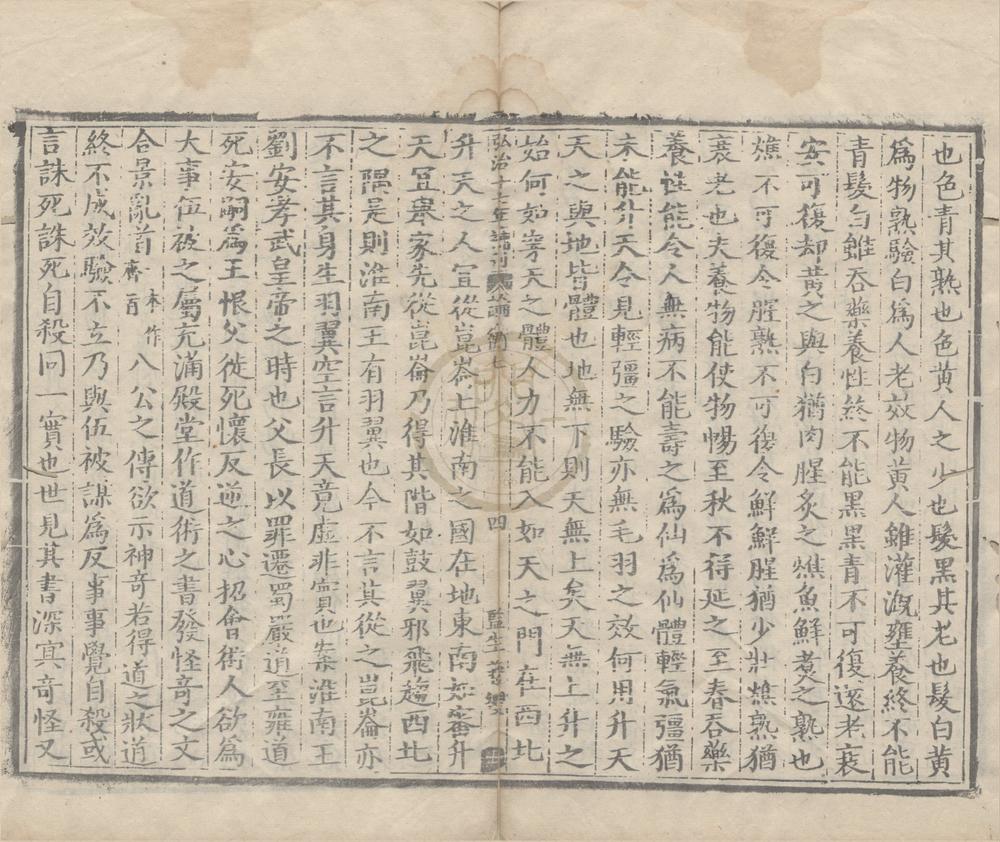 也色青其熟也色黄人之少也髮黑其老也髮白黄
爲物熟驗白爲人老效物黄人雖灌漑壅養終不能
青髮白雖吞藥養性終不能黑黑青不可復還老衰
安可復却黄之與白猶肉腥炙之燋魚鮮煮之熟也
燋不可復令腥熟不可復令鮮鮮腥猶少壯燋熟猶
衰老也夫養物能使物暢至秋不得延之至春吞藥
養性能令人無病不能壽之爲仙爲仙體輕氣彊猶
未能升天令見輕彊之驗亦無毛羽之效何用升天
天之與地皆體也地無下則天無上矣天無上升之
始何如穿天之體人力不能入如天之門在西北
升天之人宜從崑崙上淮南之國在地東南如審升
天宜舉家先從崑崙乃得其階如鼓翼邪飛趨西北
之隅是則淮南王有羽翼也今不言其從之崑崙亦
不言其身生羽翼空言升天竟虛非實也案淮南王
劉安孝武皇帝之時也父長以罪遷蜀嚴道至雍道
死安嗣爲王恨父徙死懷反逆之心招會術人欲爲
大事伍被之屬充滿殿堂作道術之書發怪奇之文
合景亂首本作齊首八公之傳欲示神奇若得道之狀道
終不成效驗不立乃與伍被謀爲反事事覺自殺或
言誅死誅死自殺同一實也世見其書深㝠奇怪又
弘治十七年 刊 論衡七 四 監生